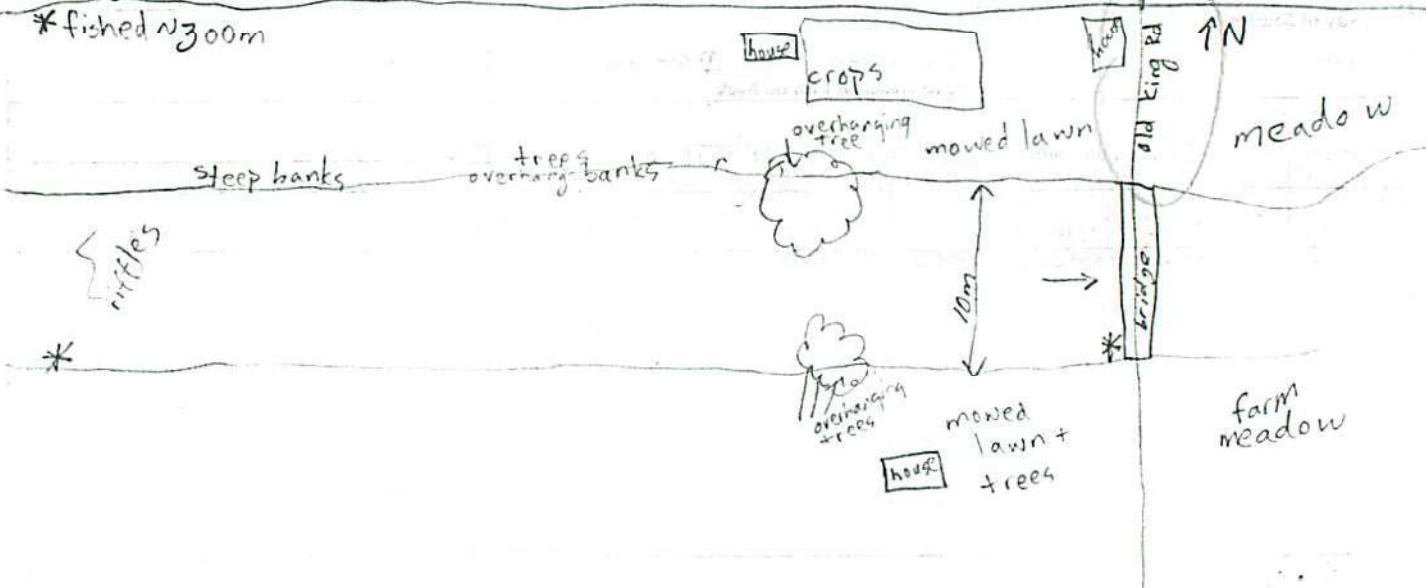 * fished ~300m
↑N
house
house
Old King Rd
crops
overhanging
tree
mowed lawn
meadow
steep banks
trees
overhang banks
riffles
10m
→
bridge
*
*
overhanging
trees
mowed
lawn +
trees
house
farm
meadow